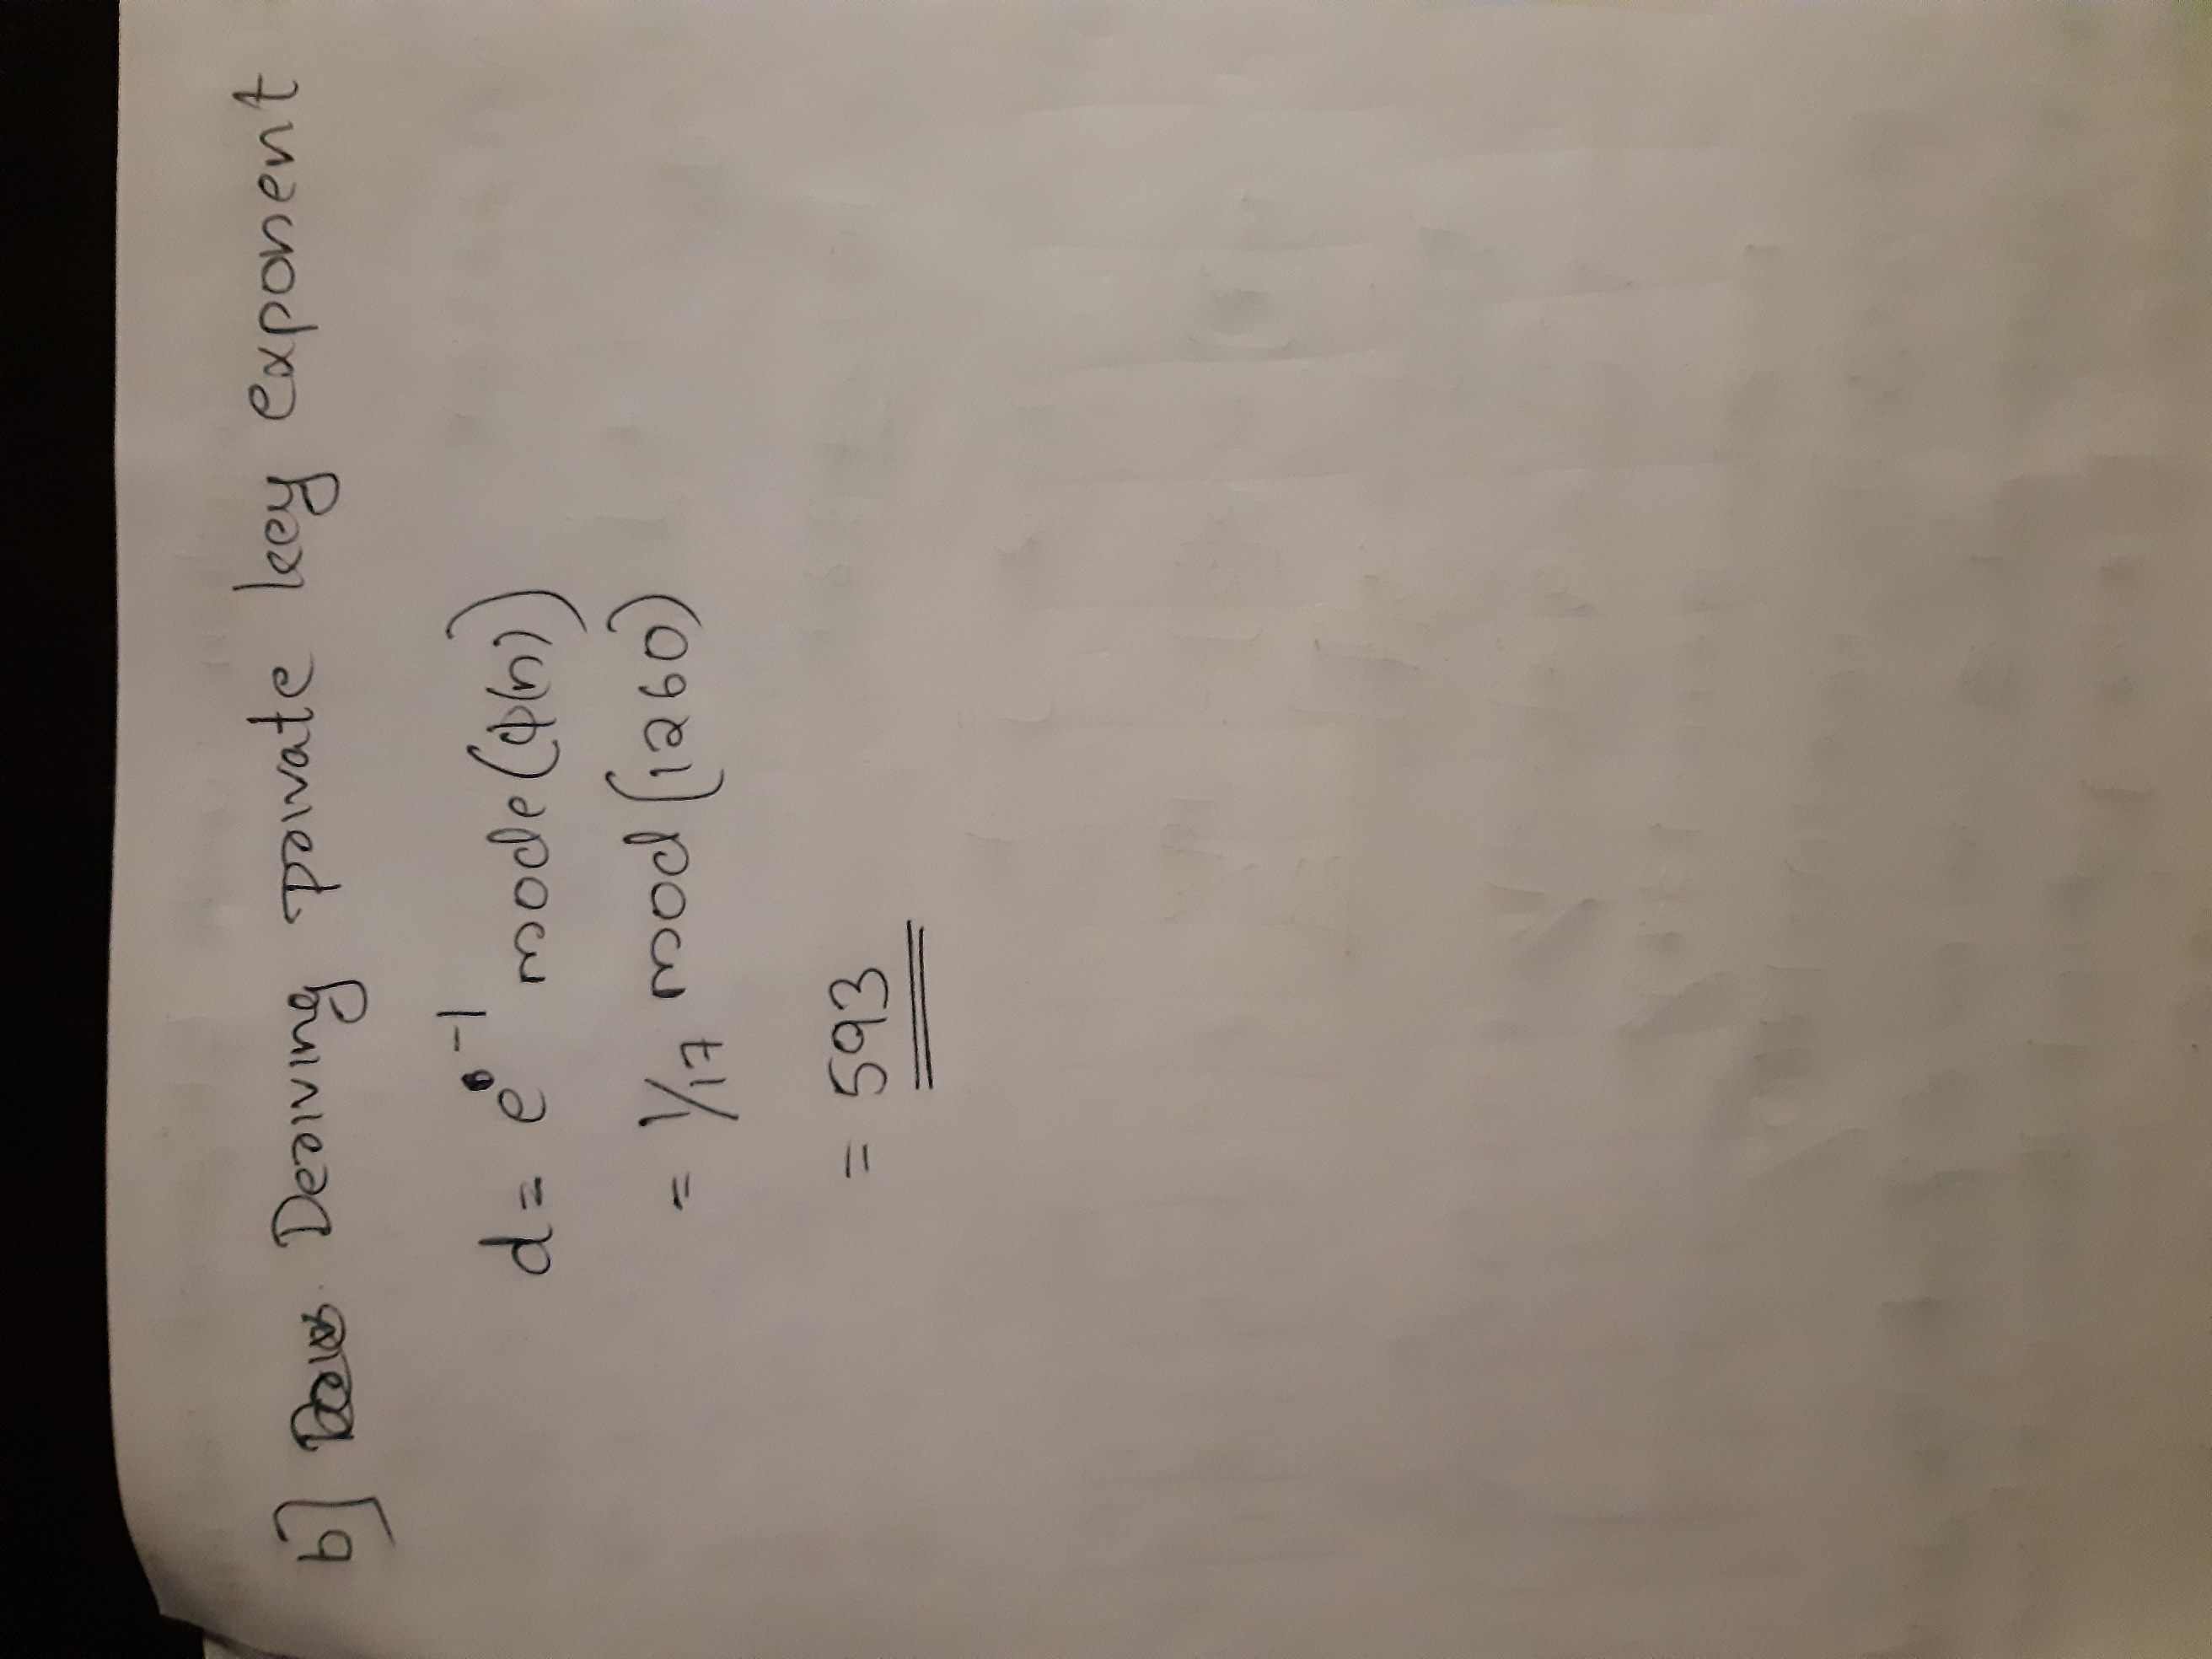 b] Deriving private key exponent
d = e⁻¹ mode (φ(n))
= 1/17 mod (1260)
= 593